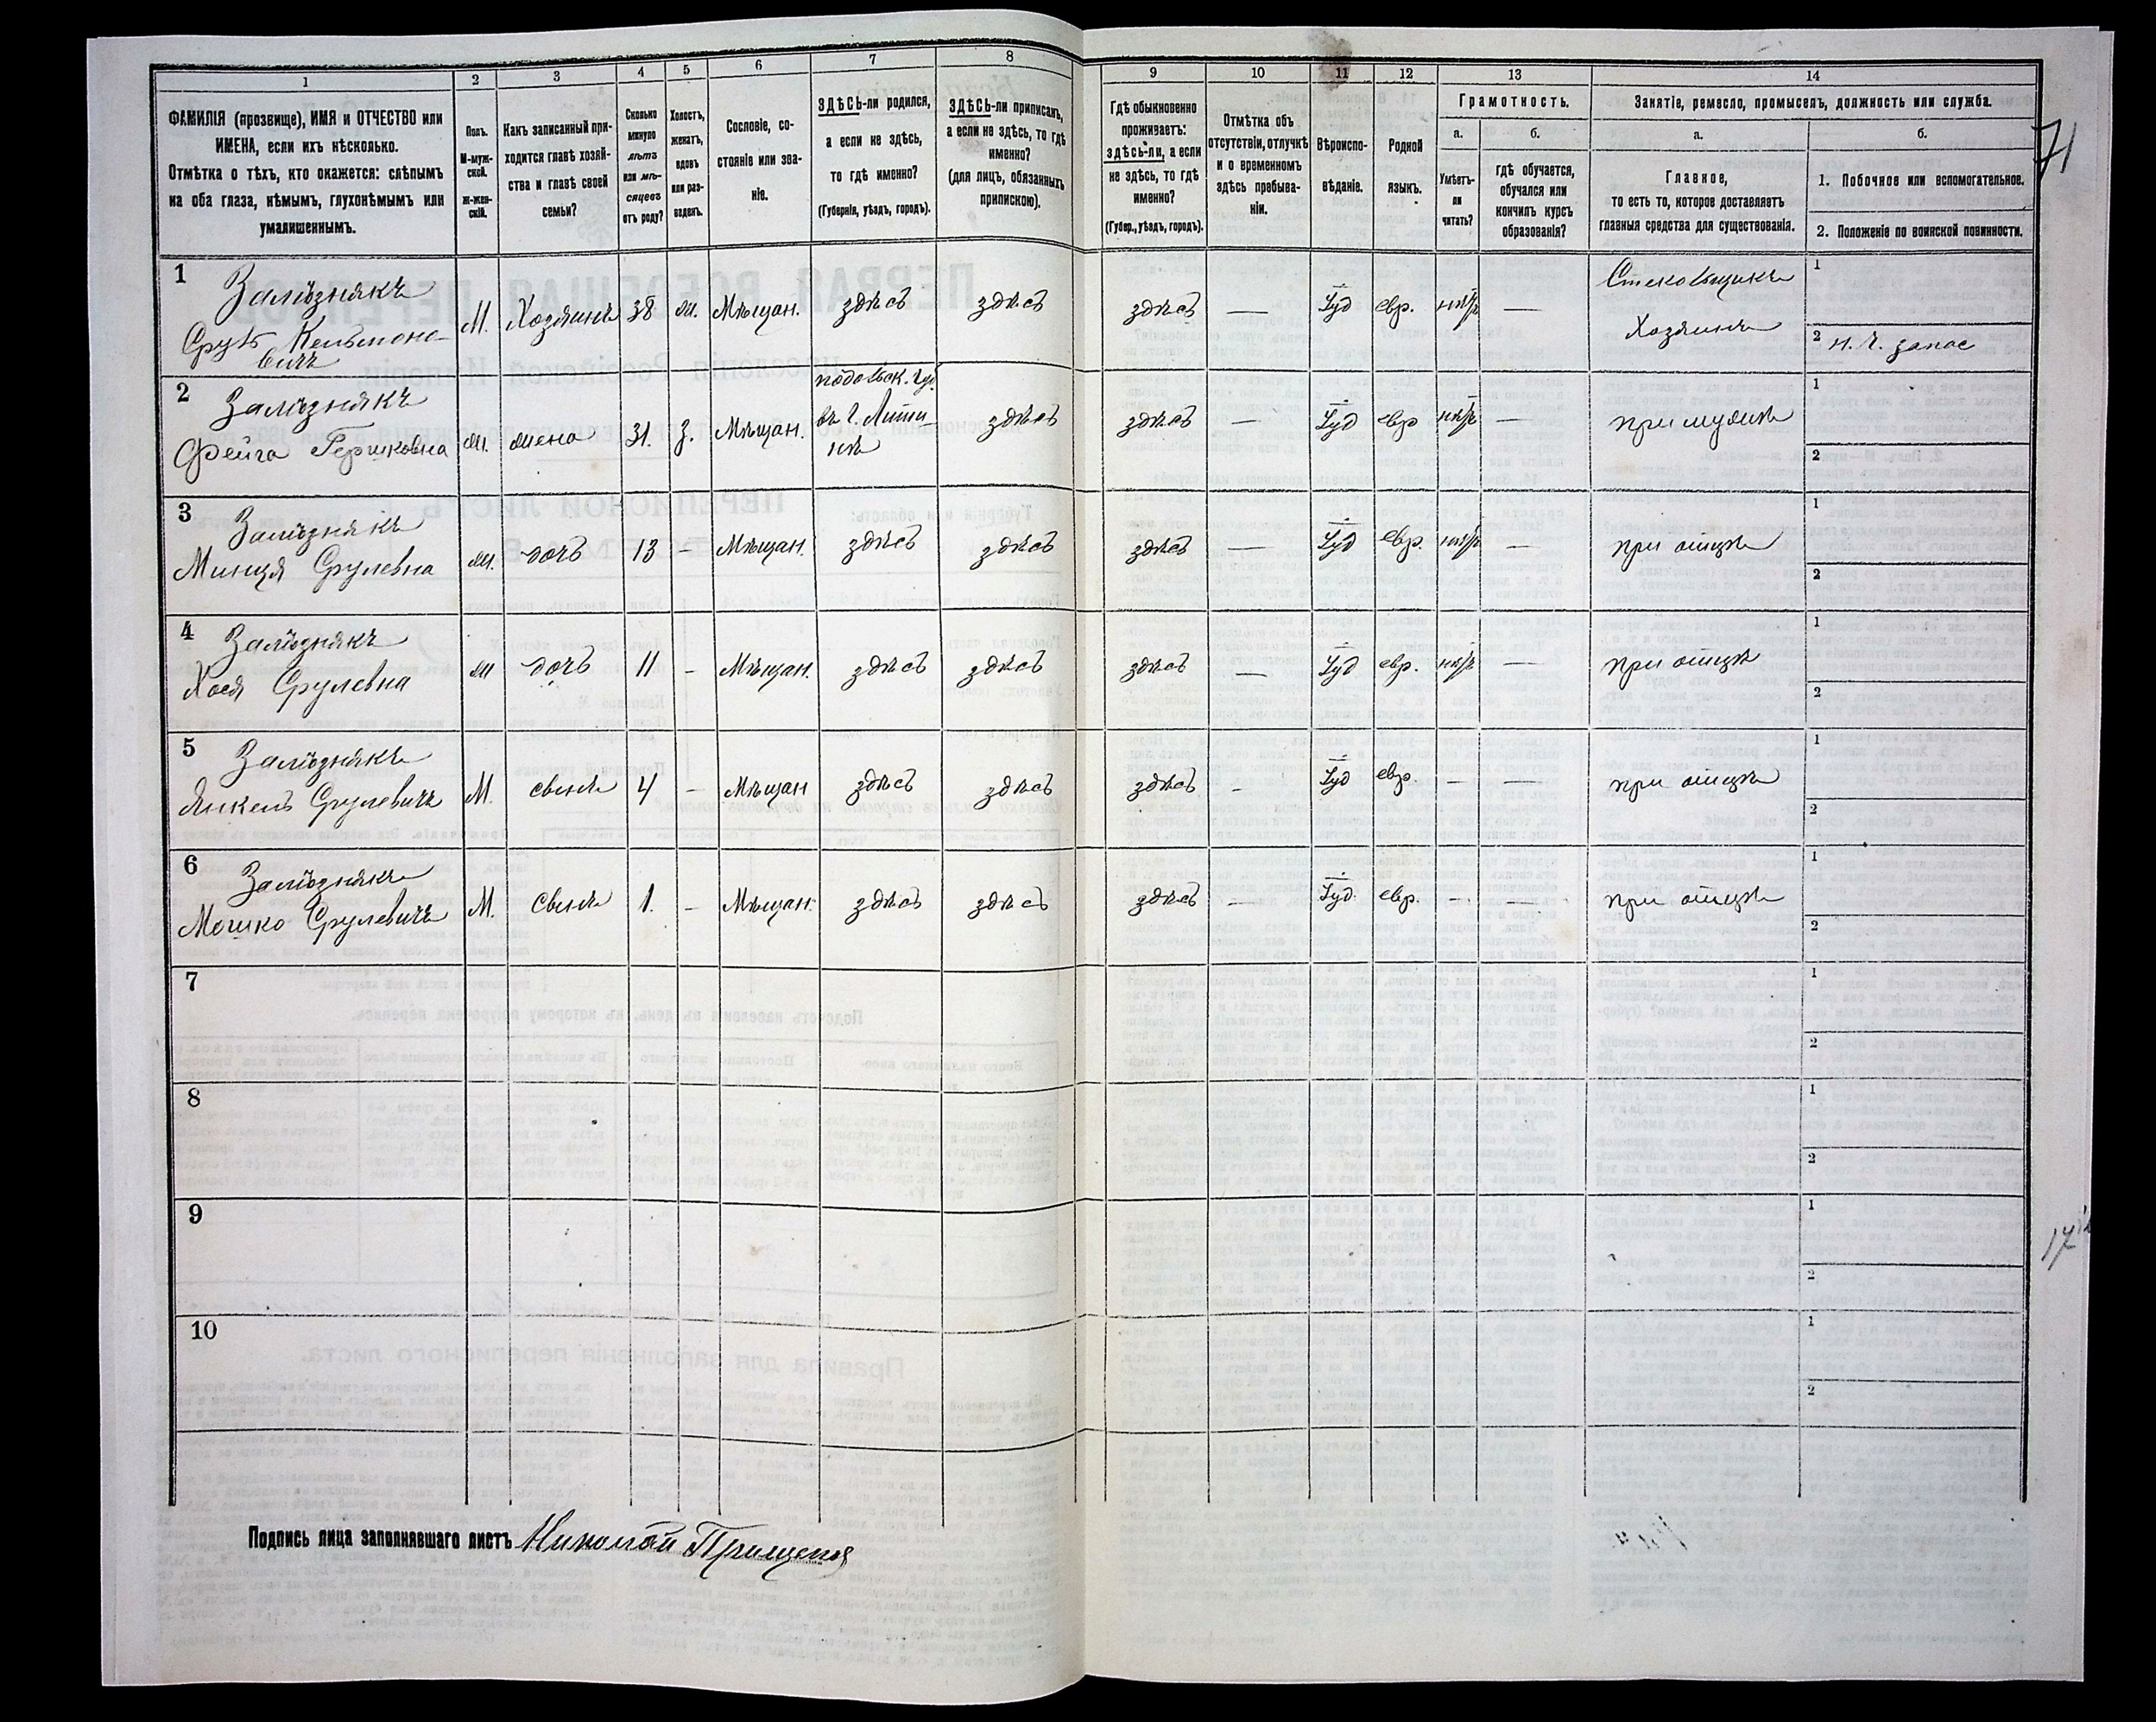 1
2
3
4
5
6
7
8
9
10
11
12
13
14
ФАМИЛІЯ (прозвище), ИМЯ и ОТЧЕСТВО или
ИМЕНА, если ихъ нѣсколько.
Отмѣтка о тѣхъ, кто окажется: слѣпымъ
на оба глаза, нѣмымъ, глухонѣмымъ или
умалишеннымъ.
Полъ.
М-муж-
ской.
Ж-жен-
скій.
Какъ записанный при-
ходится главѣ хозяй-
ства и главѣ своей
семьи?
Сколько
минуло
лѣтъ
или мѣ-
сяцевъ
отъ роду?
Холостъ,
женатъ,
вдовъ
или раз-
веденъ.
Сословіе, со-
стояніе или зва-
ніе.
ЗДѢСЬ-ли родился,
а если не здѣсь,
то гдѣ именно?
(Губернія, уѣздъ, городъ).
ЗДѢСЬ-ли приписанъ,
а если не здѣсь, то гдѣ
именно?
(для лицъ, обязанныхъ
припискою).
Гдѣ обыкновенно
проживаетъ:
здѣсь-ли, а если
не здѣсь, то гдѣ
именно?
(Губер., уѣздъ, городъ).
Отмѣтка объ
отсутствіи, отлучкѣ
и о временномъ
здѣсь пребыва-
ніи.
Вѣроиспо-
вѣданіе.
Родной
языкъ.
Грамотность.
а.
Умѣетъ-
ли
читать?
б.
гдѣ обучается,
обучался или
кончилъ курсъ
образованія?
Занятіе, ремесло, промыселъ, должность или служба.
а.
Главное,
то есть то, которое доставляетъ
главныя средства для существованія.
б.
1. Побочное или вспомогательное.
2. Положеніе по воинской повинности.
71
1
Залѣзнякъ
Сруль Кельмоно-
вичъ
М. Хозяинъ 38 ж. Мѣщан. здѣсь здѣсь здѣсь — Іуд евр. нѣтъ —
Стекольщикъ
Хозяинъ
1
2 н. ч. запас
2
Залѣзнякъ
Фейга Гершковна
ж. жена 31. з. Мѣщан.
подольск. губ.
въ г. Лити-
нѣ
здѣсь здѣсь — Іуд евр нѣтъ — при мужѣ
1
2
3
Залѣзнякъ
Минця Срулевна
ж. дочь 13 - Мѣщан. здѣсь здѣсь здѣсь — Іуд евр. нѣтъ — при отцѣ
1
2
4
Залѣзнякъ
Хася Срулевна
ж дочь 11 - Мѣщан. здѣсь здѣсь здѣсь — Іуд евр. нѣтъ — при отцѣ
1
2
5
Залѣзнякъ
Янкель Срулевичъ
М. сынъ 4 - Мѣщан здѣсь здѣсь здѣсь - Іуд евр. - — при отцѣ
1
2
6
Залѣзнякъ
Мошко Срулевичъ
М. сынъ 1. - Мѣщан. здѣсь здѣсь здѣсь — Іуд. евр. - — при отцѣ
1
2
7
1
2
8
1
2
9
1
2
10
1
2
Подпись лица заполнявшаго листъ Николай Прищепа